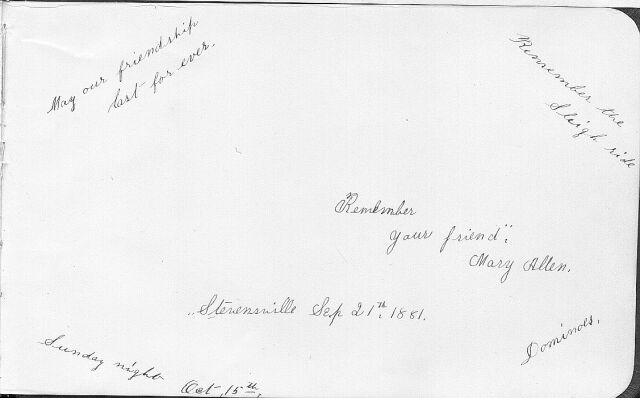 May our friendship
last for ever.
Remember the
Sleigh ride
Remember
your friend".
Mary Allen.
"Stevensville Sep 21th. 1881.
Dominoes.
Sunday night
Oct, 15th,